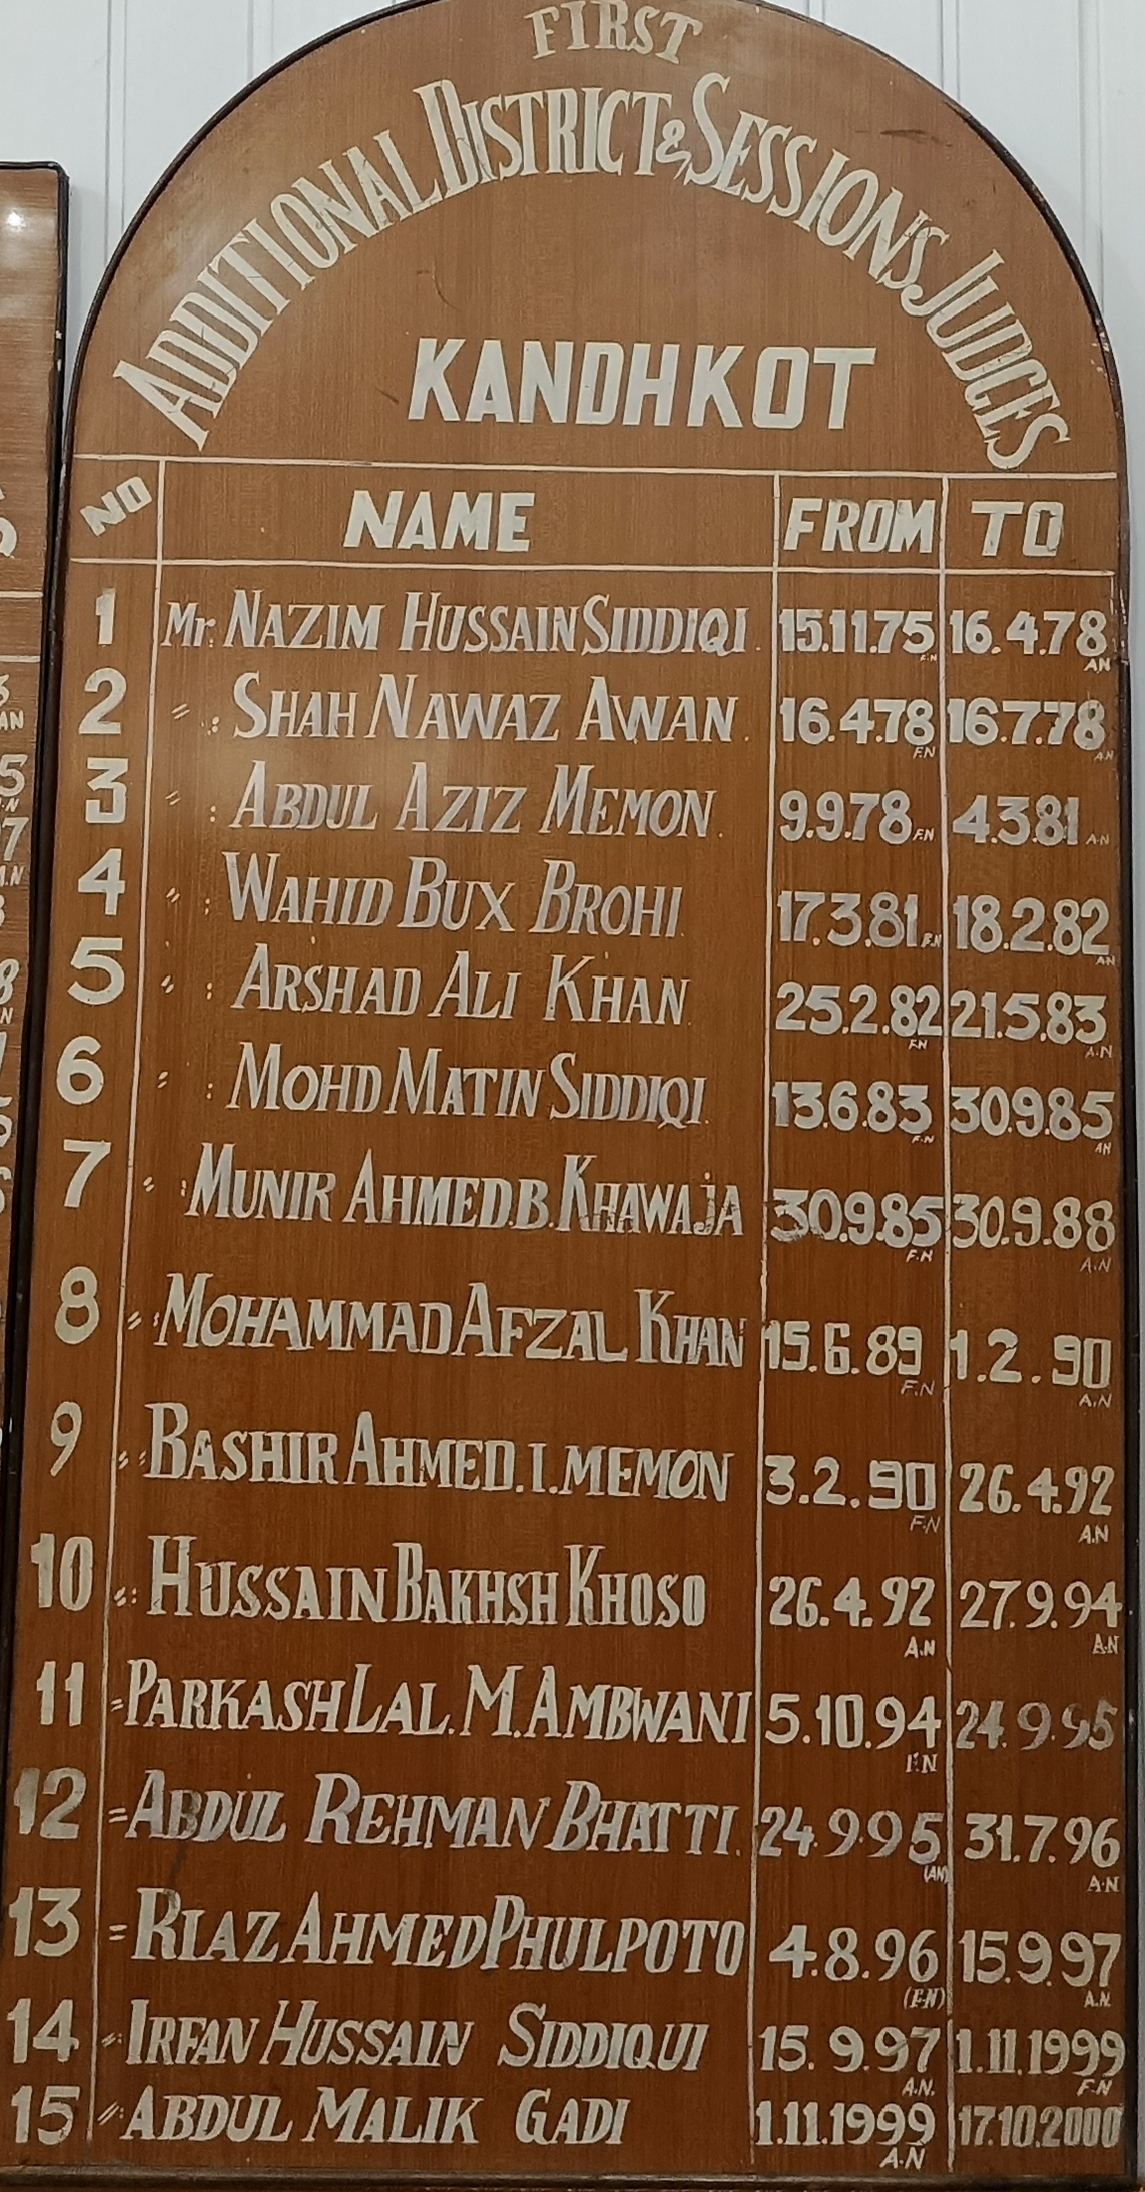 FIRST
ADDITIONAL DISTRICT & SESSIONS JUDGES
KANDHKOT
NO NAME FROM TO
1 Mr. NAZIM HUSSAIN SIDDIQI. 15.11.75 F.N 16.4.78 AN
2 〃 : SHAH NAWAZ AWAN. 16.4.78 F.N 16.7.78 A.N
3 〃 : ABDUL AZIZ MEMON. 9.9.78 F.N 4.3.81 A.N
4 〃 : WAHID BUX BROHI 17.3.81 F.N 18.2.82 AN
5 〃 : ARSHAD ALI KHAN 25.2.82 F.N 21.5.83 A.N
6 〃 : MOHD MATIN SIDDIQI. 13.6.83 F.N 30.9.85 AN
7 〃 : MUNIR AHMED.B.KHAWAJA 30.9.85 F.N 30.9.88 A.N
8 〃 : MOHAMMAD AFZAL KHAN 15.6.89 F.N 1.2.90 A.N
9 〃 : BASHIR AHMED.I.MEMON 3.2.90 F.N 26.4.92 A.N
10 〃 : HUSSAIN BAKHSH KHOSO 26.4.92 A.N 27.9.94 A.N
11 〃 PARKASH LAL.M.AMBWANI 5.10.94 F.N 24.9.95
12 〃 ABDUL REHMAN BHATTI. 24.9.95 (AN) 31.7.96 A.N
13 〃 RIAZ AHMED PHULPOTO 4.8.96 (F.N) 15.9.97 A.N.
14 〃 : IRFAN HUSSAIN SIDDIQUI 15.9.97 A.N. 1.11.1999 F.N
15 〃 : ABDUL MALIK GADI 1.11.1999 A.N 17.10.2000